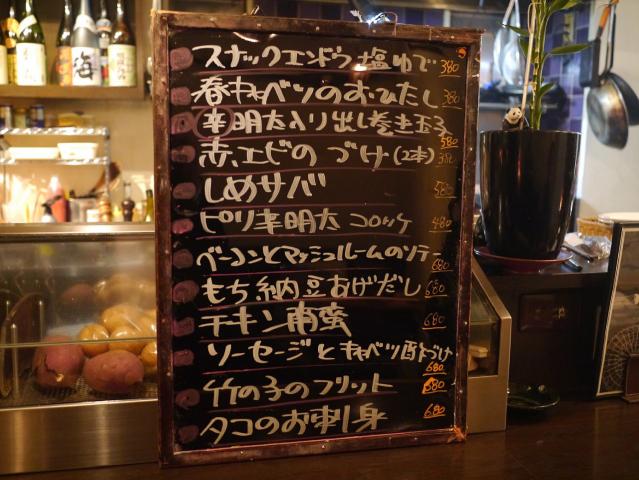 梅
スナックエンドウ塩ゆで 380
春キャベツのおひたし 380
辛 明太入り出し巻き玉子 580
赤エビのづけ(2本) 380
しめサバ 580
ピリ辛明太コロッケ 480
ベーコンとマッシュルームのソテー 680
もち納豆あげだし 680
チキン南蛮 680
ソーセージとキャベツ酢づけ 680
竹の子のフリット 380
タコのお刺身 680